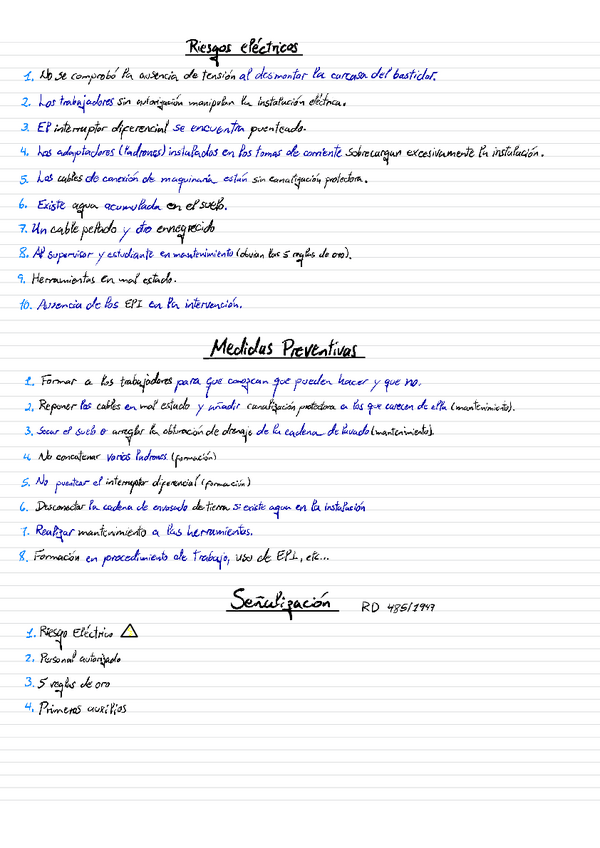 Riesgos eléctricos
1. No se comprobó la ausencia de tensión al desmontar la carcasa del bastidor.
2. Los trabajadores sin autorización manipulan la instalación eléctrica.
3. El interruptor diferencial se encuentra puenteado.
4. Los adaptadores (ladrones) instalados en las tomas de corriente sobrecargan excesivamente la instalación.
5. Los cables de conexión de maquinaria están sin canalización protectora.
6. Existe agua acumulada en el suelo.
7. Un cable pelado y otro ennegrecido
8. Al supervisor y estudiante en mantenimiento (obvian las 5 reglas de oro).
9. Herramientas en mal estado.
10. Ausencia de los EPI en la intervención.
Medidas Preventivas
1. Formar a los trabajadores para que conozcan que pueden hacer y que no.
2. Reponer los cables en mal estado y añadir canalización protectora a los que carecen de ella (mantenimiento).
3. Secar el suelo o arreglar la obturación de drenaje de la cadena de lavado (mantenimiento).
4. No concatenar varios ladrones (formación)
5. No puentear el interruptor diferencial (formación)
6. Desconectar la cadena de envasado de tierra si existe agua en la instalación
7. Realizar mantenimiento a las herramientas.
8. Formación en procedimiento de trabajo, uso de EPI, etc...
Señalización RD 485/1997
1. Riesgo Eléctrico
2. Personal autorizado
3. 5 reglas de oro
4. Primeros auxilios